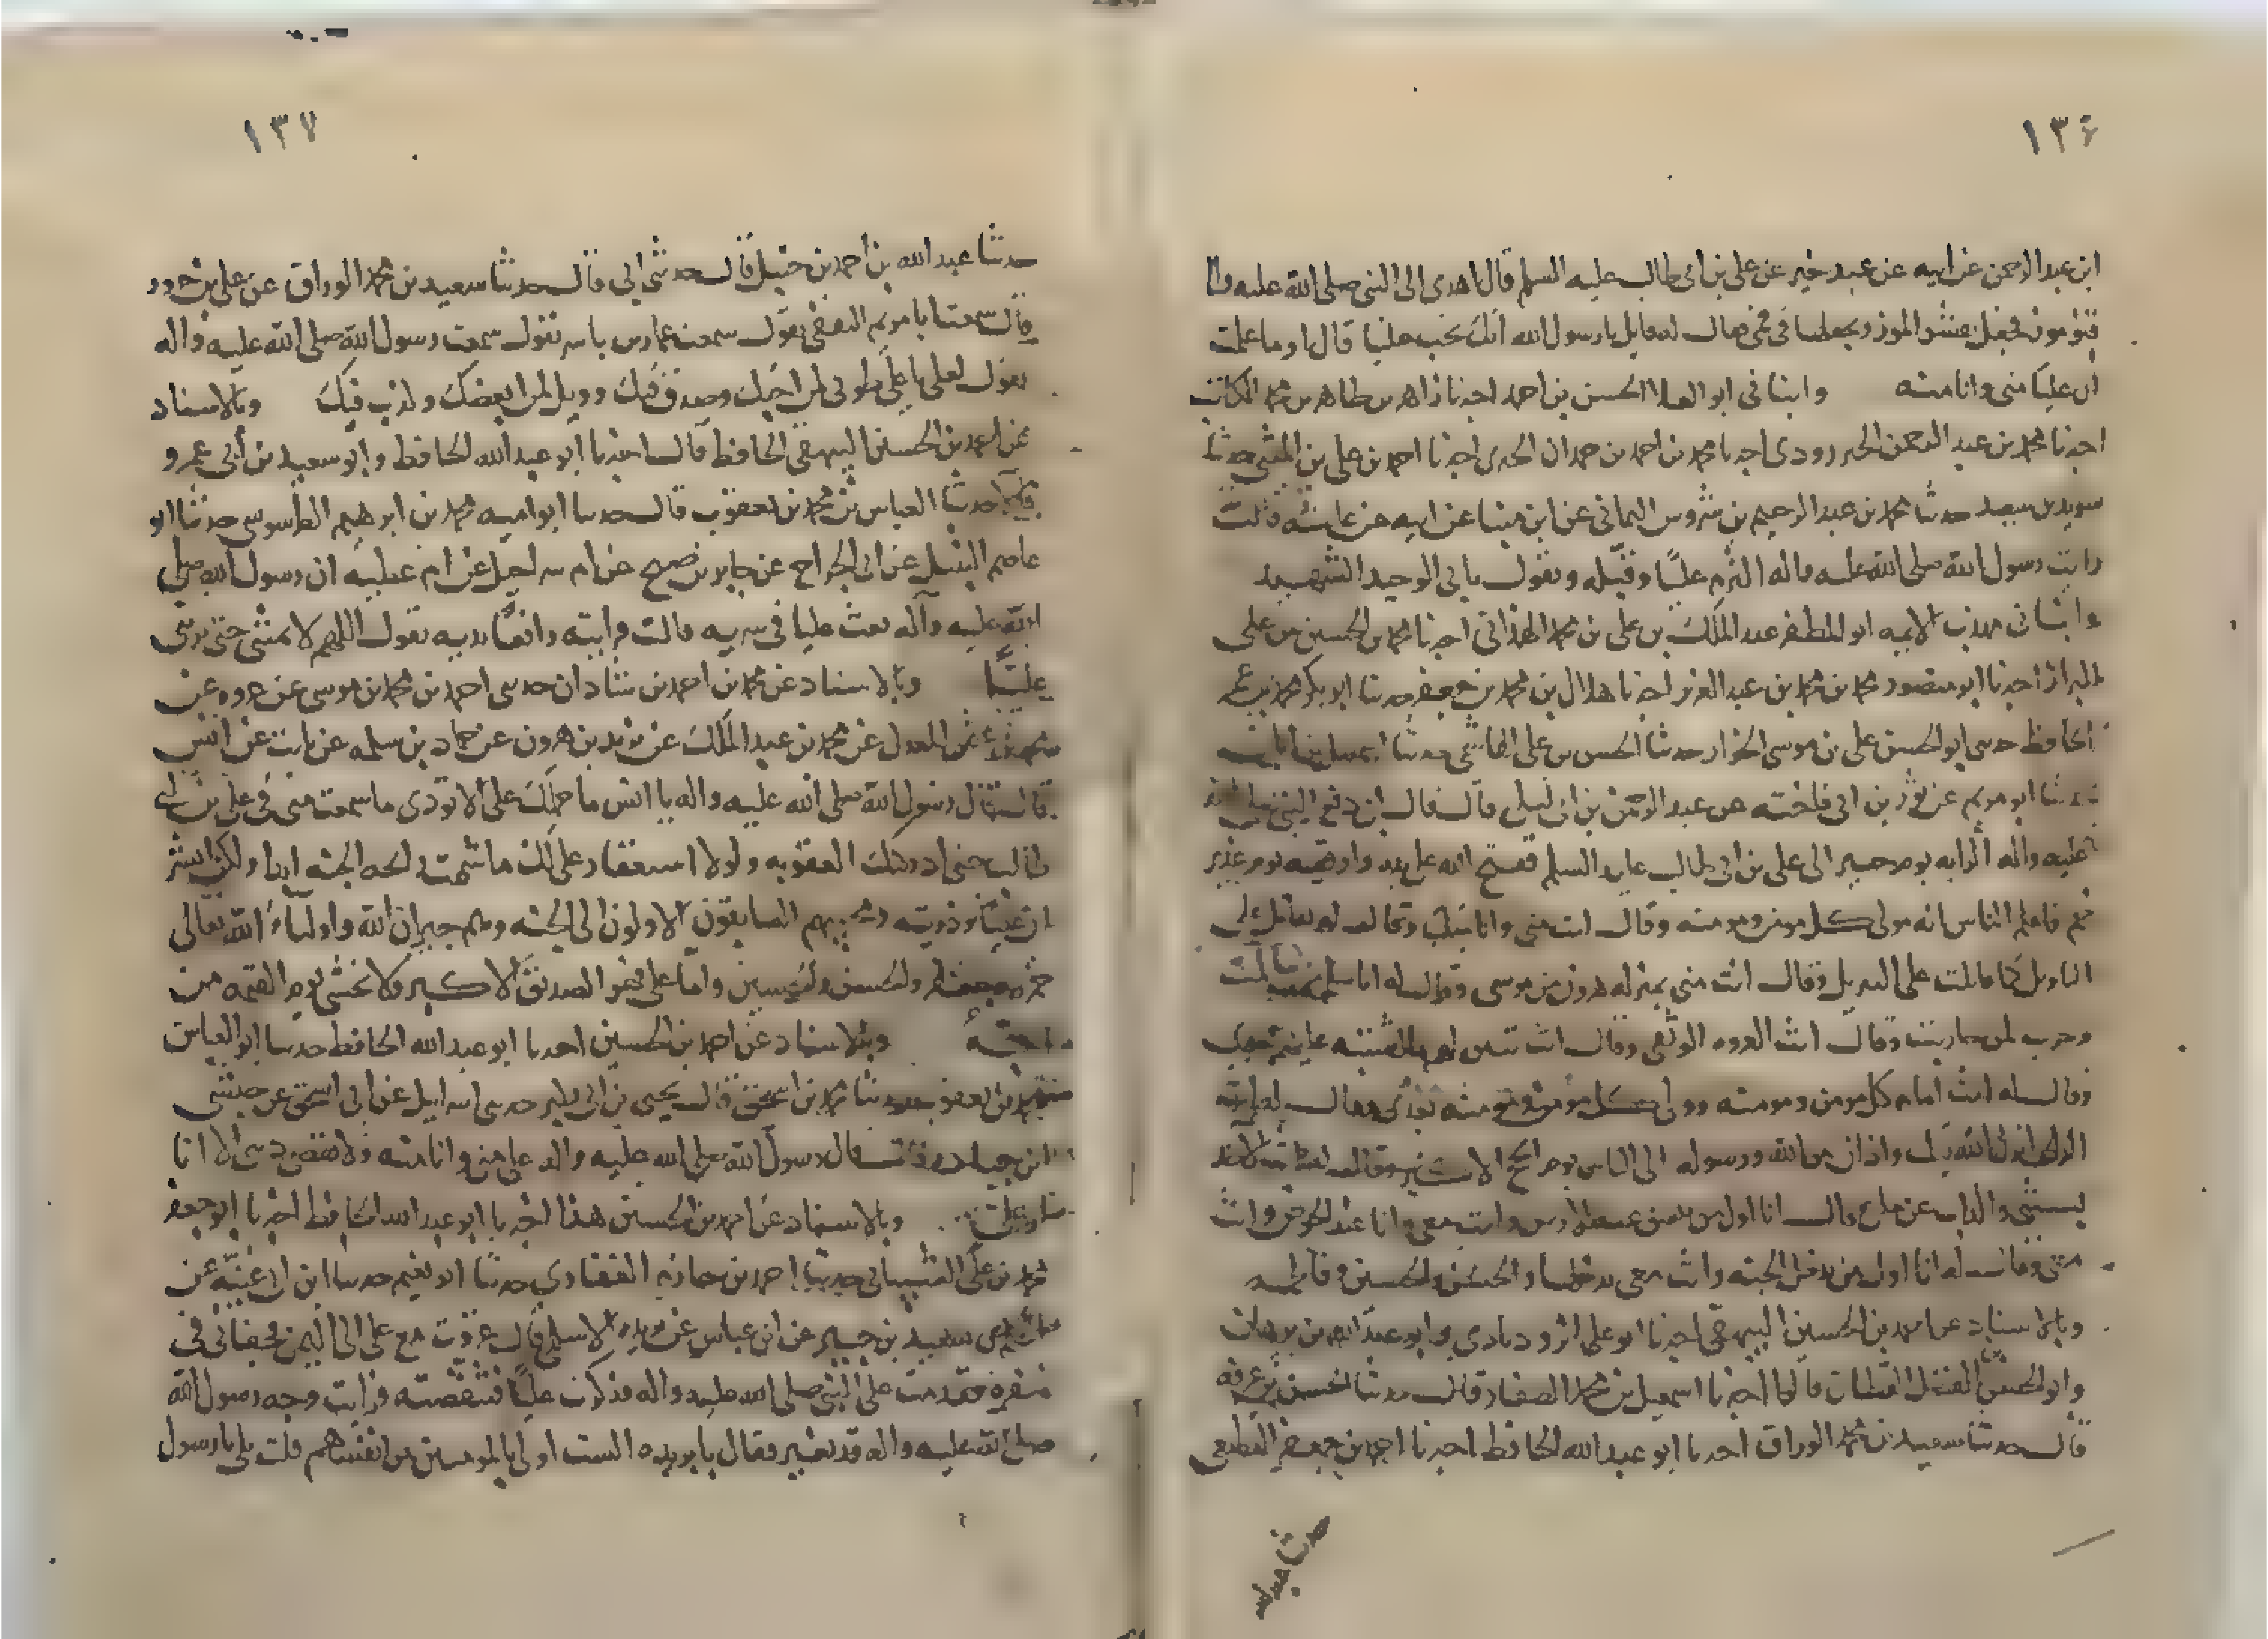 ١٣٦
ابن عبد الرحمن عن ابيه عن عبد خير عن علي بن ابي طالب عليه السلم قال اهدى الى النبي صلى الله عليه وآله
قنو موز فجعل يقشر الموز ويجعلها في فمي فقال له قايل يا رسول الله انك تحب عليا قال اوما علمت
ان عليا مني وانا منه وانباني ابو العلا الحسن بن احمد اخبرنا زاهر بن طاهر بن محمد الكاتب
اخبرنا محمد بن عبد الرحمن الجنزرودي اخبرنا محمد بن احمد بن حمدان الحيري اخبرنا احمد بن علي بن المثنى حدثنا
سويد بن سعيد حدثنا محمد بن عبد الرحيم بن شروس اليماني عن ابن مينا عن ابيه عن عايشه قالت
رايت رسول الله صلى الله عليه واله التزم عليا وقبله ويقول بابي الوحيد الشهيد
وانباني مهذب الايمه ابو المظفر عبد الملك بن علي بن محمد الهمذاني اخبرنا محمد بن الحسين بن علي
البزاز اخبرنا ابو منصور محمد بن محمد بن عبد العزيز اخبرنا هلال بن محمد بن جعفر حدثنا ابو بكر محمد بن عمر
الحافظ حدثني ابو الحسن علي بن موسى الخزاز حدثنا الحسن بن علي الهاشمي حدثنا اسمعيل بن ابان
حدثنا ابو مريم عن ثوير بن ابي فاخته عن عبد الرحمن بن ابي ليلى قال قال ابي دفع النبي صلى الله
عليه واله الرايه يوم خيبر الى علي بن ابي طالب عليه السلم ففتح الله على يده واوقفه يوم غدير
خم فاعلم الناس انه مولى كل مومن ومومنه وقال انت مني وانا منك وقال له تقاتل على
التاويل كما قاتلت على التنزيل وقال انت مني بمنزله هرون من موسى وقال له انا سلم لمن سالمت
وحرب لمن حاربت وقال انت العروه الوثقى وقال انت تبين لهم ما اشتبه عليهم بعدي
وقال له انت امام كل مومن ومومنه وولي كل مومن ومومنه بعدي وقال له انت
الذي انزل الله فيك واذان من الله ورسوله الى الناس يوم الحج الاكبر وقال له انت الاخذ
بسنتي والذاب عن ملتي وقال انا اول من تنشق عنه الارض وانت معي وانا عند الحوض وانت
معي وقال له انا اول من يدخل الجنه وانت معي تدخلها والحسن والحسين وفاطمه
وبالاسناد عن احمد بن الحسين البيهقي اخبرنا ابو علي الروذبادي وابو عبد الله بن برهان
وابو الحسين الفضل القطان قالوا اخبرنا اسمعيل بن محمد الصفار قال حدثنا الحسن بن عرفه
قال حدثنا سعيد بن محمد الوراق اخبرنا ابو عبد الله الحافظ اخبرنا احمد بن جعفر القطيعي
١٣٧
حدثنا عبد الله بن احمد بن حنبل قال حدثني ابي قال حدثنا سعيد بن محمد الوراق عن علي بن حزور
قال سمعت ابا مريم الثقفي يقول سمعت عمار بن ياسر يقول سمعت رسول الله صلى الله عليه واله
يقول لعلي يا علي طوبى لمن احبك وصدق فيك وويل لمن ابغضك وكذب فيك وبالاسناد
عن احمد بن الحسين البيهقي الحافظ قال اخبرنا ابو عبد الله الحافظ وابو سعيد بن ابي عمرو
قالا حدثنا العباس بن محمد بن يعقوب قال حدثنا ابو اميه محمد بن ابراهيم الطرسوسي حدثنا ابو
عاصم النبيل عن ابي الجراح عن جابر بن صبيح عن ام شراحيل عن ام عطيه ان رسول الله صلى
الله عليه وآله بعث عليا في سريه قالت فرايته رافعا يديه يقول اللهم لا تمتني حتى تريني
عليا وبالاسناد عن محمد بن احمد بن شاذان حدثني احمد بن محمد بن موسى عن عروه عن
محمد بن عثمن المعدل عن محمد بن عبد الملك عن يزيد بن هرون عن حماد بن سلمه عن ثابت عن انس
قال قال رسول الله صلى الله عليه واله يا انس ما حملك على الا تودي ما سمعت مني في علي بن ابي
طالب حتى ادركتك العقوبه ولولا استغفار علي لك ما شممت رايحه الجنه ابدا ولكن ابشر
ان عليا وذريته ومحبيهم السابقون الاولون الى الجنه وهم جيران الله واوليا الله تعالى
حمزه وجعفر والحسن والحسين واما علي فهو الصديق الاكبر ولا تخشى يوم القيمه من
احبه وبالاسناد عن احمد بن الحسين اخبرنا ابو عبد الله الحافظ حدثنا ابو العباس
محمد بن يعقوب حدثنا محمد بن اسحق قال يحيى بن ابي بكير حدثني اسرايل عن ابي اسحق عن حبشي
ابن جناده قال قال رسول الله صلى الله عليه واله علي مني وانا منه ولا يقضي ديني الا انا
او علي وبالاسناد عن احمد بن الحسين هذا اخبرنا ابو عبد الله الحافظ اخبرنا ابو جعفر
محمد بن علي الشيباني حدثنا احمد بن حازم الغفاري حدثنا ابو نعيم حدثنا ابن ابي غنيه عن
سعيد بن جبير عن ابن عباس عن بريده الاسلمي قال غزوت مع علي الى اليمن فجفاني في
سفره فقدمت على النبي صلى الله عليه واله فذكرت عليا فتنقصته فرايت وجه رسول الله
صلى الله عليه واله قد تغير فقال يا بريده الست اولى بالمومنين من انفسهم قلت بلى يا رسول